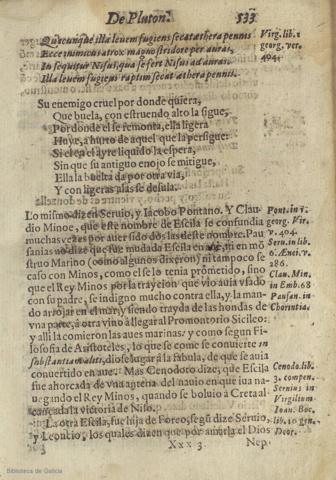 De Pluton. 533
Quæcunque illa leuem fugiens secat æthera pennis
Ecce inimicus atrox magno stridore per auras,
In sequitur Nisus, qua se fert Nisus ad auras,
Illa leuem fugiens raptim secat æthera pennis.
Virg. lib. 1
georg. ver.
404.
Su enemigo cruel por donde quiera,
Que buela, con estruendo alto la sigue,
Por donde el se remonta, ella ligera
Huye, a hurto de aquel que la persigue:
Si el es el ayre liquido la espera,
Sin que su antiguo enojo se mitigue,
Ella la buelta da por otra via,
Y con ligeras alas se desuia.
Lo mismo dizen Seruio, y Iacobo Pontano. Y Clau
dio Minoe, que este nombre de Escila se confundia
muchas vezes por auer sido dos las deste nombre. Pau
sanias no dize que fue mudada Escila en aue, ni en mō
struo Marino (como algunos dixeron) ni tampoco se
caso con Minos, como el se lo tenia prometido, sino
que el Rey Minos por la trayciō que vio auia vsado
con su padre, se indigno mucho contra ella, y la man-
do arrojar en el mar, y siendo trayda de las hondas de
vna parte, a otra vino a llegar al Promontorio Sciliceo:
y alli la comieron las aues marinas: y como segun Fi-
losofia de Aristoteles, lo que se come se conuierte in
substantiam aliti, diose lugar a la fabula, de que se auia
conuertido en aue. Mas Cenodoto dize, que Escila
fue ahorcada de vna antena del nauio en que iua na-
uegando el Rey Minos, quando se boluio a Creta al
cançada la victoria de Niso.
La otra Escila, fue hija de Forco, segū dize Seruio
y Leoncio, los quales dizen que por amarla el Dios
Pont. in 1.
georg. Vir.
v. 404.
Seru. in lib.
6. Æneid. v.
286.
Clau. Min.
in Emb. 68
Pausan. in
Chorintia.
Cenodo. lib.
3. compen.
Seruius in
Virgilium
Ioan. Boc.
lib. 10 gen.
Deor.
Xxx 3 Nep-
Biblioteca de Galicia